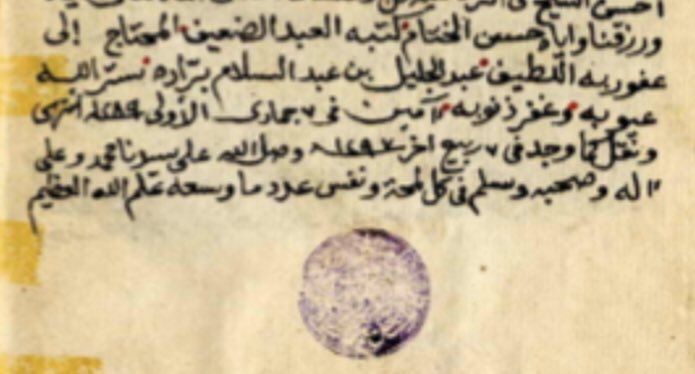 ورزقنا واياه حسن الختام كتبه العبد الضعيف المحتاج إلى
عفو ربه اللطيف عبد الجليل بن عبد السلام برّاده ستر الله
عيوبه وغفر ذنوبه آمين في ٧ جمادى الأولى انتهى
ونقل كما وجد في ٧ ربيع اخر وصلى الله على سيدنا محمد وعلى
اله وصحبه وسلم في كل لمحة ونفس عدد ما وسعه علم الله العظيم